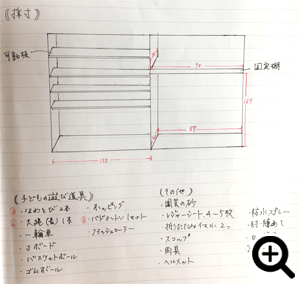 《採寸》
可動棚
固定棚
90
169
89
110
《子どもの遊び道具》
・なわとび2本
・大縄(長)1本
・一輪車
・Jボード
・バスケットボール
・ゴムボール
・ホッピング
・バドミントン1セット
《その他》
・園芸の砂
・レジャーシート 4〜5枚
・折りたたみイス小 2つ
・スコップ
・雨具
・ヘルメット
・防水スプレー